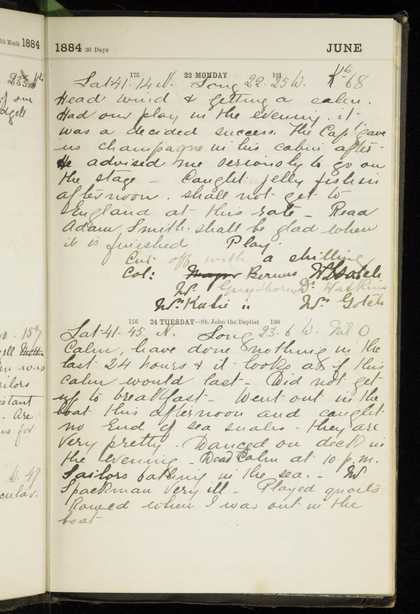 th Month 1884
1884 30 Days JUNE
175 23 MONDAY 191
Lat 41. 14 N. Long 22. 25 W. 68
Head wind & getting a calm.
Had our play in the evening. it
was a decided success. The Capt gave
us champagne in his cabin after-
He advised me seriously to go on
the stage – Caught jelly fish in
afternoon. shall not get to
England at this rate – Read
Adam Smith. shall be glad when
it is finished Play
Cut off with a shilling
Col: Berners
Mr Dr
Mr Katie is Mr
176 24 TUESDAY—St. John the Baptist 190
Lat 41. 45 N. Long 23. 6 W. 0
Calm, have done nothing in the
last 24 hours & it looks as if this
calm would last – Did not get
up to breakfast – Went out in the
boat this afternoon and caught
no end of sea snails. they are
very pretty. Danced on deck in
the evening – Dead Calm at 10 p.m.
Sailors bathing in the sea. – Mr
Spackman very ill – Played quoits
Rowed when I was out in the
boat